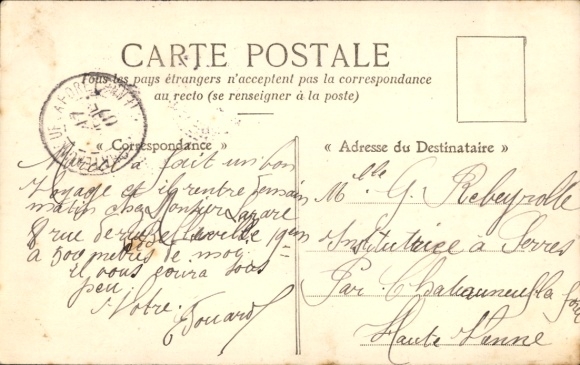 CARTE POSTALE
Tous les pays étrangers n'acceptent pas la correspondance
au recto (se renseigner à la poste)
« Correspondance »
Marcel a fait un bon
voyage et il rentre demain
matin chez Monsieur Lazare
8 rue de Belleville 19em
à 500 metres de moy
il vous ecrira sous
peu.
Votre
Edouard
« Adresse du Destinataire »
Mlle G. Rebeyrolle
Institutrice à Serres
Par Chateauneuf la forêt
Haute Vienne